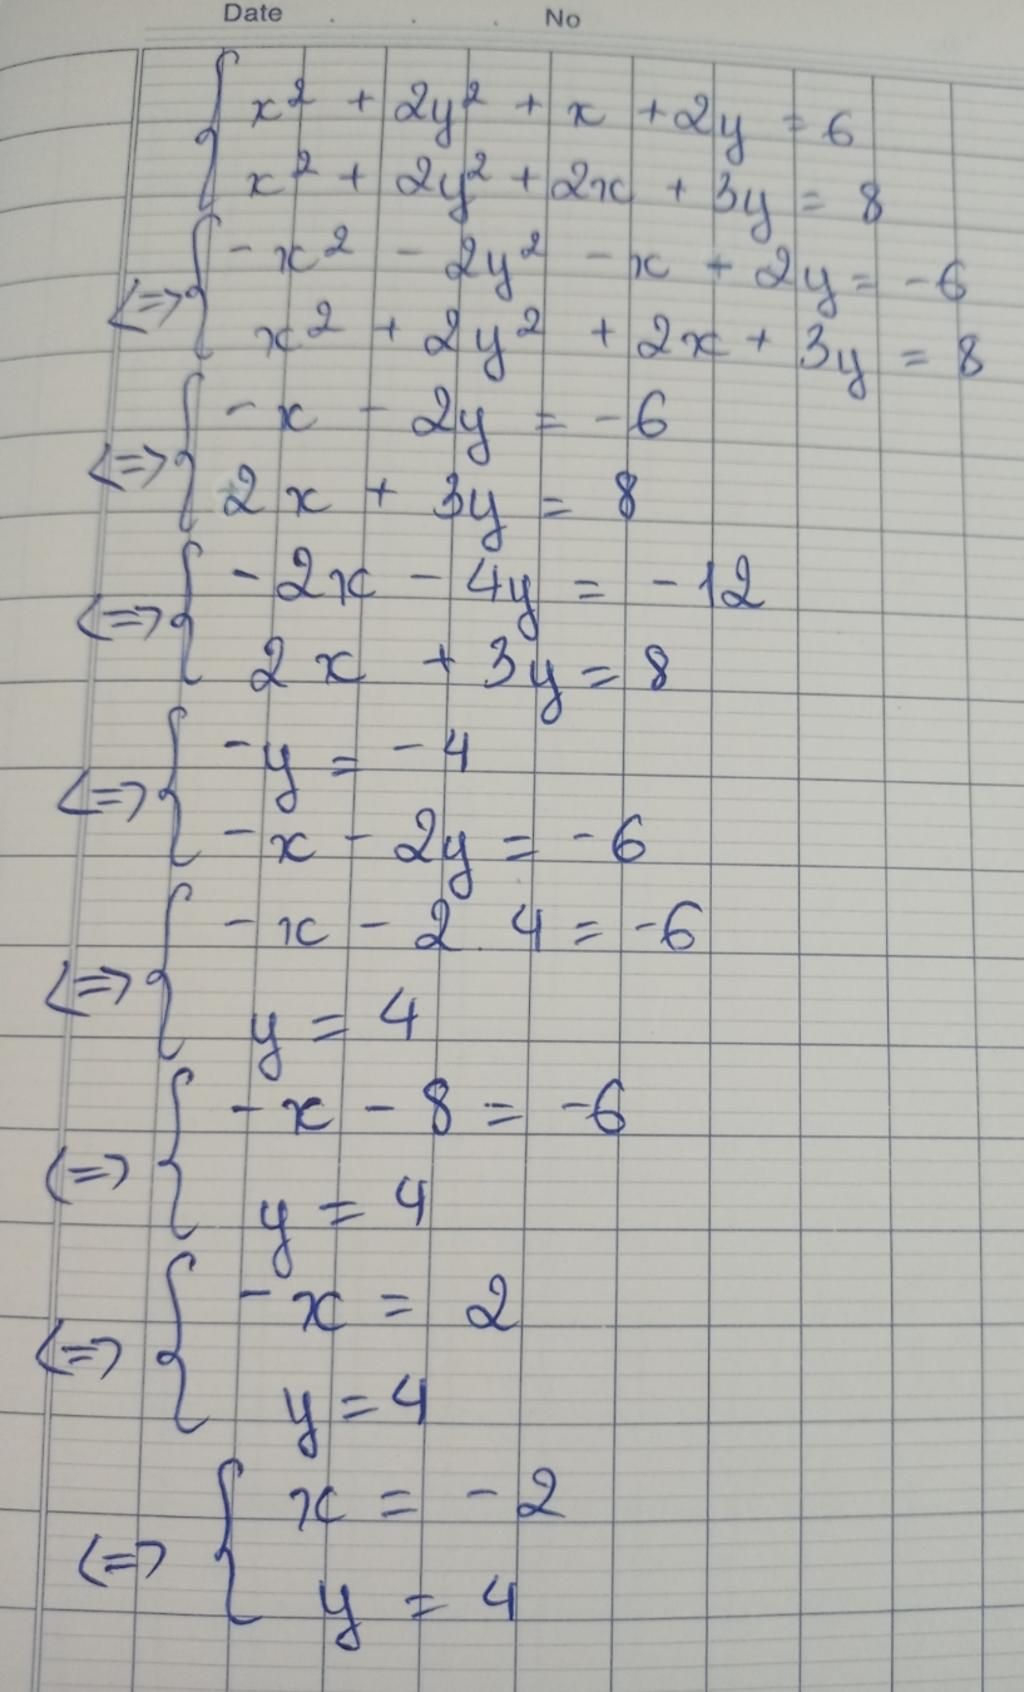 Date . . . No
{ x² + 2y² + x + 2y = 6
x² + 2y² + 2x + 3y = 8
<=> { - x² - 2y² - x + 2y = - 6
x² + 2y² + 2x + 3y = 8
<=> { - x - 2y = - 6
2x + 3y = 8
<=> { - 2x - 4y = - 12
2x + 3y = 8
<=> { - y = - 4
- x - 2y = - 6
<=> { - x - 2 . 4 = - 6
y = 4
<=> { - x - 8 = - 6
y = 4
<=> { - x = 2
y = 4
<=> { x = - 2
y = 4